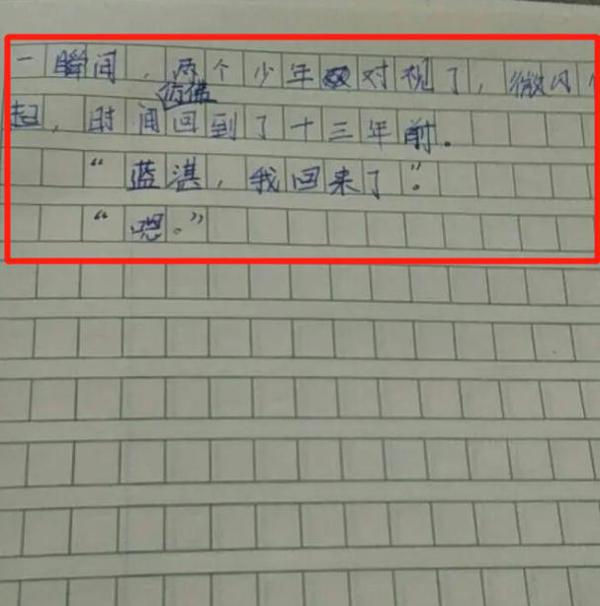 一瞬间，两个少年对视了，微风
起，时间仿佛回到了十三年前。
“蓝湛，我回来了”。
“嗯。”